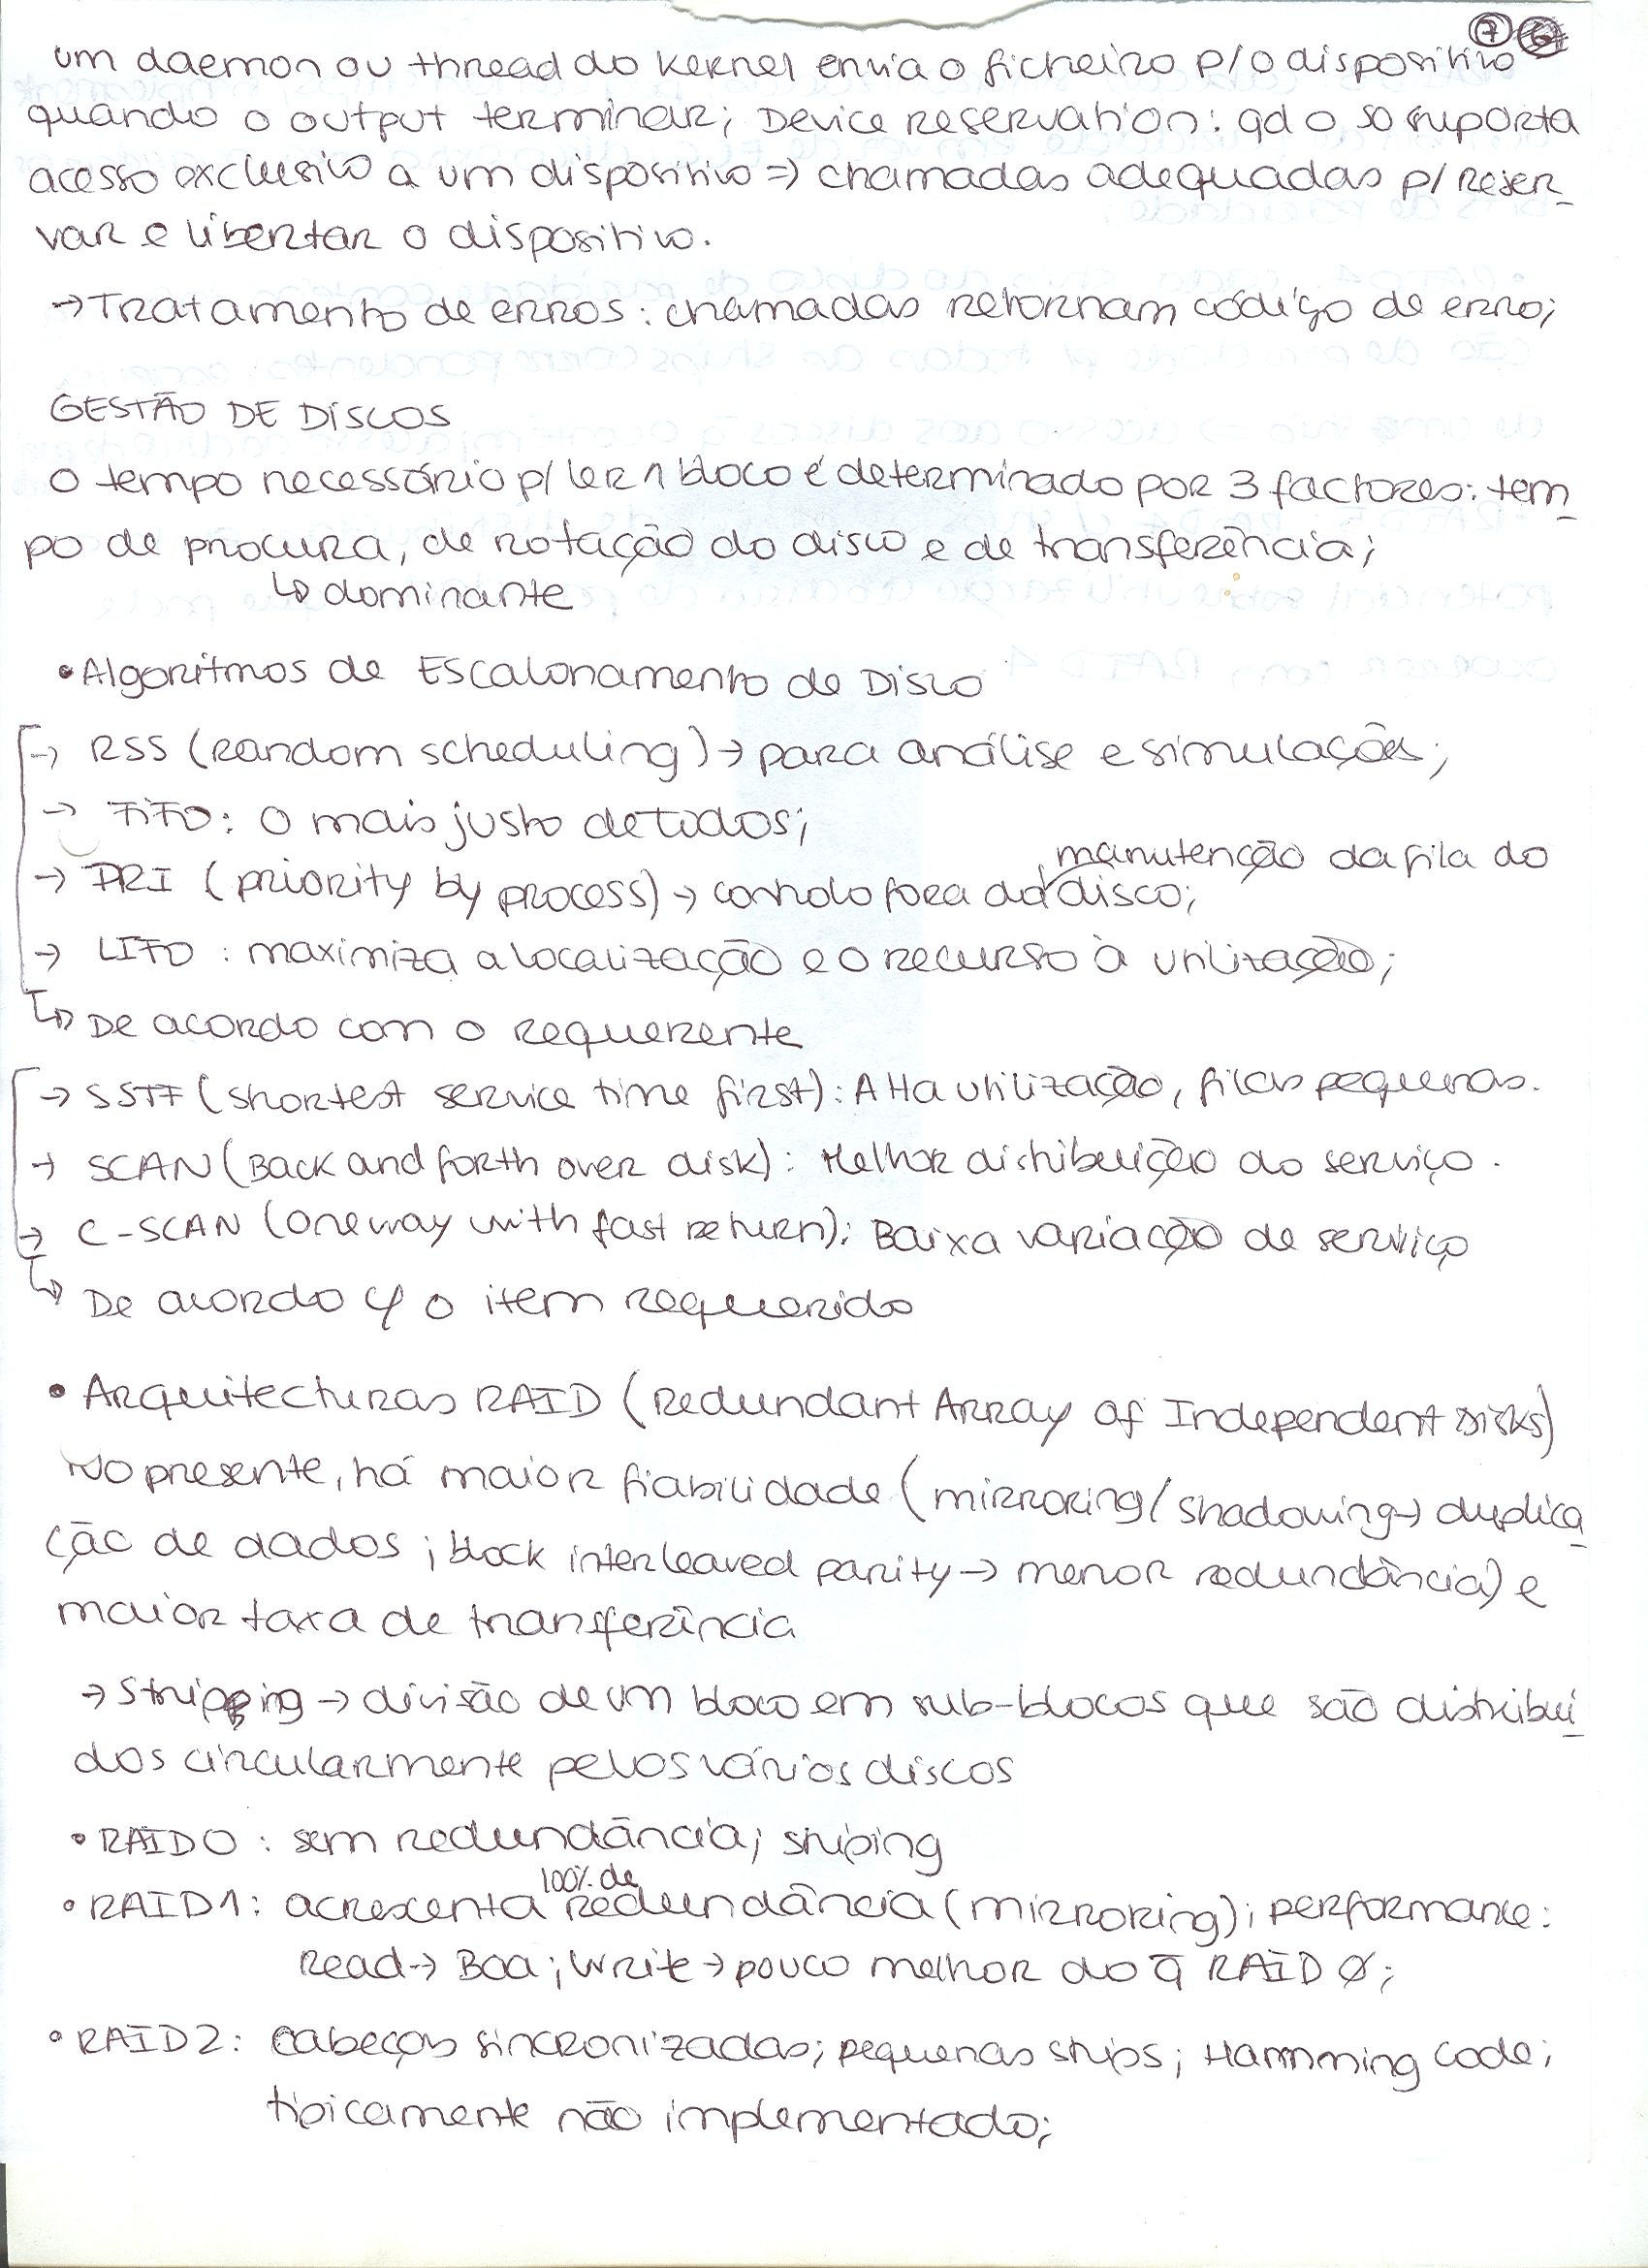 7
um daemon ou thread do kernel envia o ficheiro p/ o dispositivo
quando o output terminar; Device reservation: qd o so suporta
acesso exclusivo a um dispositivo => chamadas adequadas p/ reser_
var e libertar o dispositivo.
→ Tratamento de erros: chamadas retornam código de erro;
GESTÃO DE DISCOS
O tempo necessário p/ ler 1 bloco é determinado por 3 factores: tem_
po de procura, de rotação do disco e de transferência;
↳ dominante
• Algoritmos de Escalonamento de Disco
→ RSS (Random scheduling) → para análise e simulações;
→ FIFO: O mais justo de todos;
→ PRI (priority by process) → controlo fora da manutenção da fila do disco;
→ LIFO: maximiza a localização e o recurso à utilização;
↳ De acordo com o requerente
→ SSTF (shortest service time first): Alta utilização, filas pequenas.
→ SCAN (Back and forth over disk): Melhor distribuição do serviço.
→ C-SCAN (one way with fast return): Baixa variação de serviço
↳ De acordo c/ o item requerido
• Arquitecturas RAID (Redundant Array of Independent Disks)
No presente, há maior fiabilidade (mirroring/shadowing → duplica_
ção de dados; block interleaved parity → menor redundância) e
maior taxa de transferência
→ Striping → divisão de um bloco em sub-blocos que são distribui_
dos circularmente pelos vários discos
• RAID0: sem redundância; striping
• RAID1: acrescenta 100% de redundância (mirroring); performance:
Read → Boa; Write → pouco melhor do q̄ RAID Ø;
• RAID2: Cabeças sincronizadas; pequenas strips; Hamming code;
tipicamente não implementado;